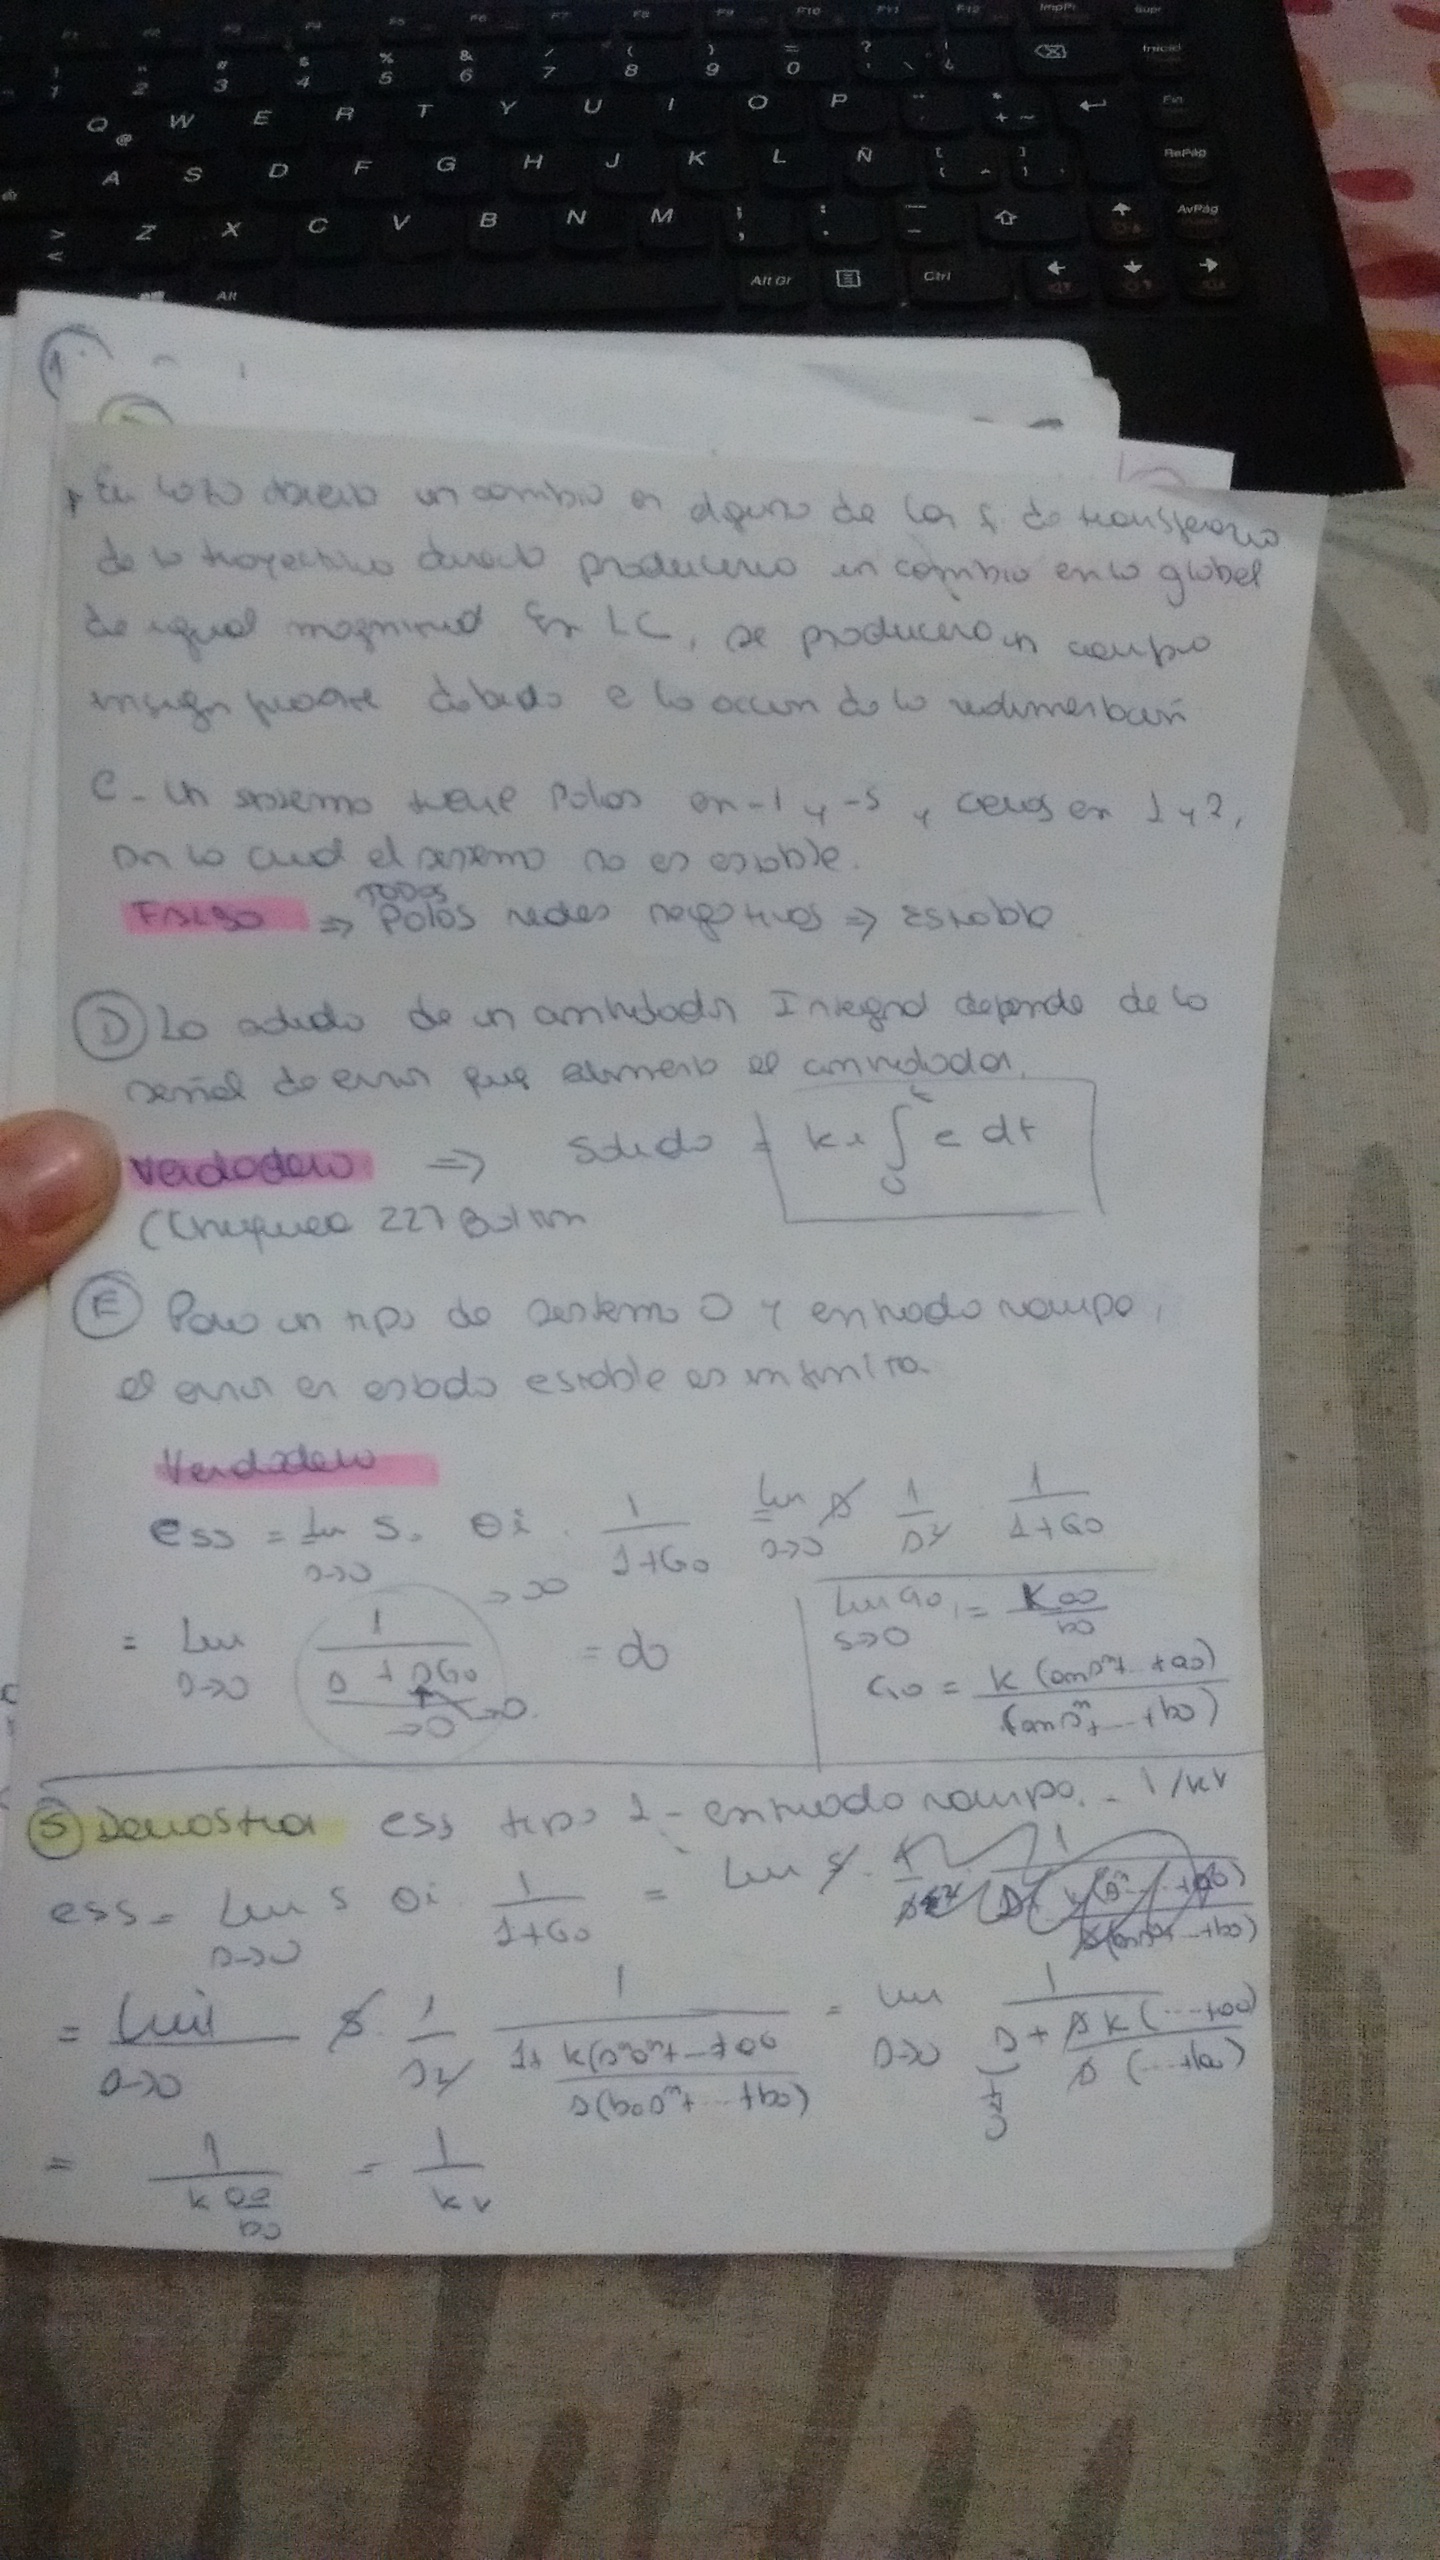 F5 F6 F7 F8 F9 F10 F11 F12 ImpPt Supr
1 2 3 4 5 6 7 8 9 0 Inicio
Q W E R T Y U I O P Fin
A S D F G H J K L Ñ RePág
Z X C V B N M AvPág
Alt Alt Gr Ctrl
En lazo abierto un cambio en alguno de las f. de transferencia
de la trayectoria directa producirá un cambio en la global
de igual magnitud. En LC, se producirá un cambio
insignificante debido a la acción de la
C - Un sistema tiene Polos en -1 y -5 y ceros en 1 y 2,
por lo cual el sistema no es estable.
Falso => Todos Polos reales negativos => Estable
D La salida de un controlador Integral depende de la
señal de error que alimenta el controlador.
Verdadero => Salida = ki ∫₀ᵗ e dt
(Chequear 227 Bolton
E Para un tipo de sistema 0 y entrada rampa,
el error en estado estable es infinito.
Verdadero
ess = lim s→0 s. θi . 1/(1+Go) = lim s→0 s . 1/s² . 1/(1+Go)
= Lim s→0 1/(s + sGo) = ∞
Lim s→0 Go = K ao/bo
Go = k (ansⁿ+ +ao)/( +...+bo)
5 Demostrar ess tipo 1 - entrada rampa. = 1/kv
ess = Lim s→0 s θi 1/(1+Go) = Lim s.
= Lim s→0 s . 1/s² 1/(1+ k( +...+ao)/s( +...+bo)) = lim s→0 1/(s + s k(...+ao)/s(...+bo))
= 1/(k ao/bo) = 1/kv